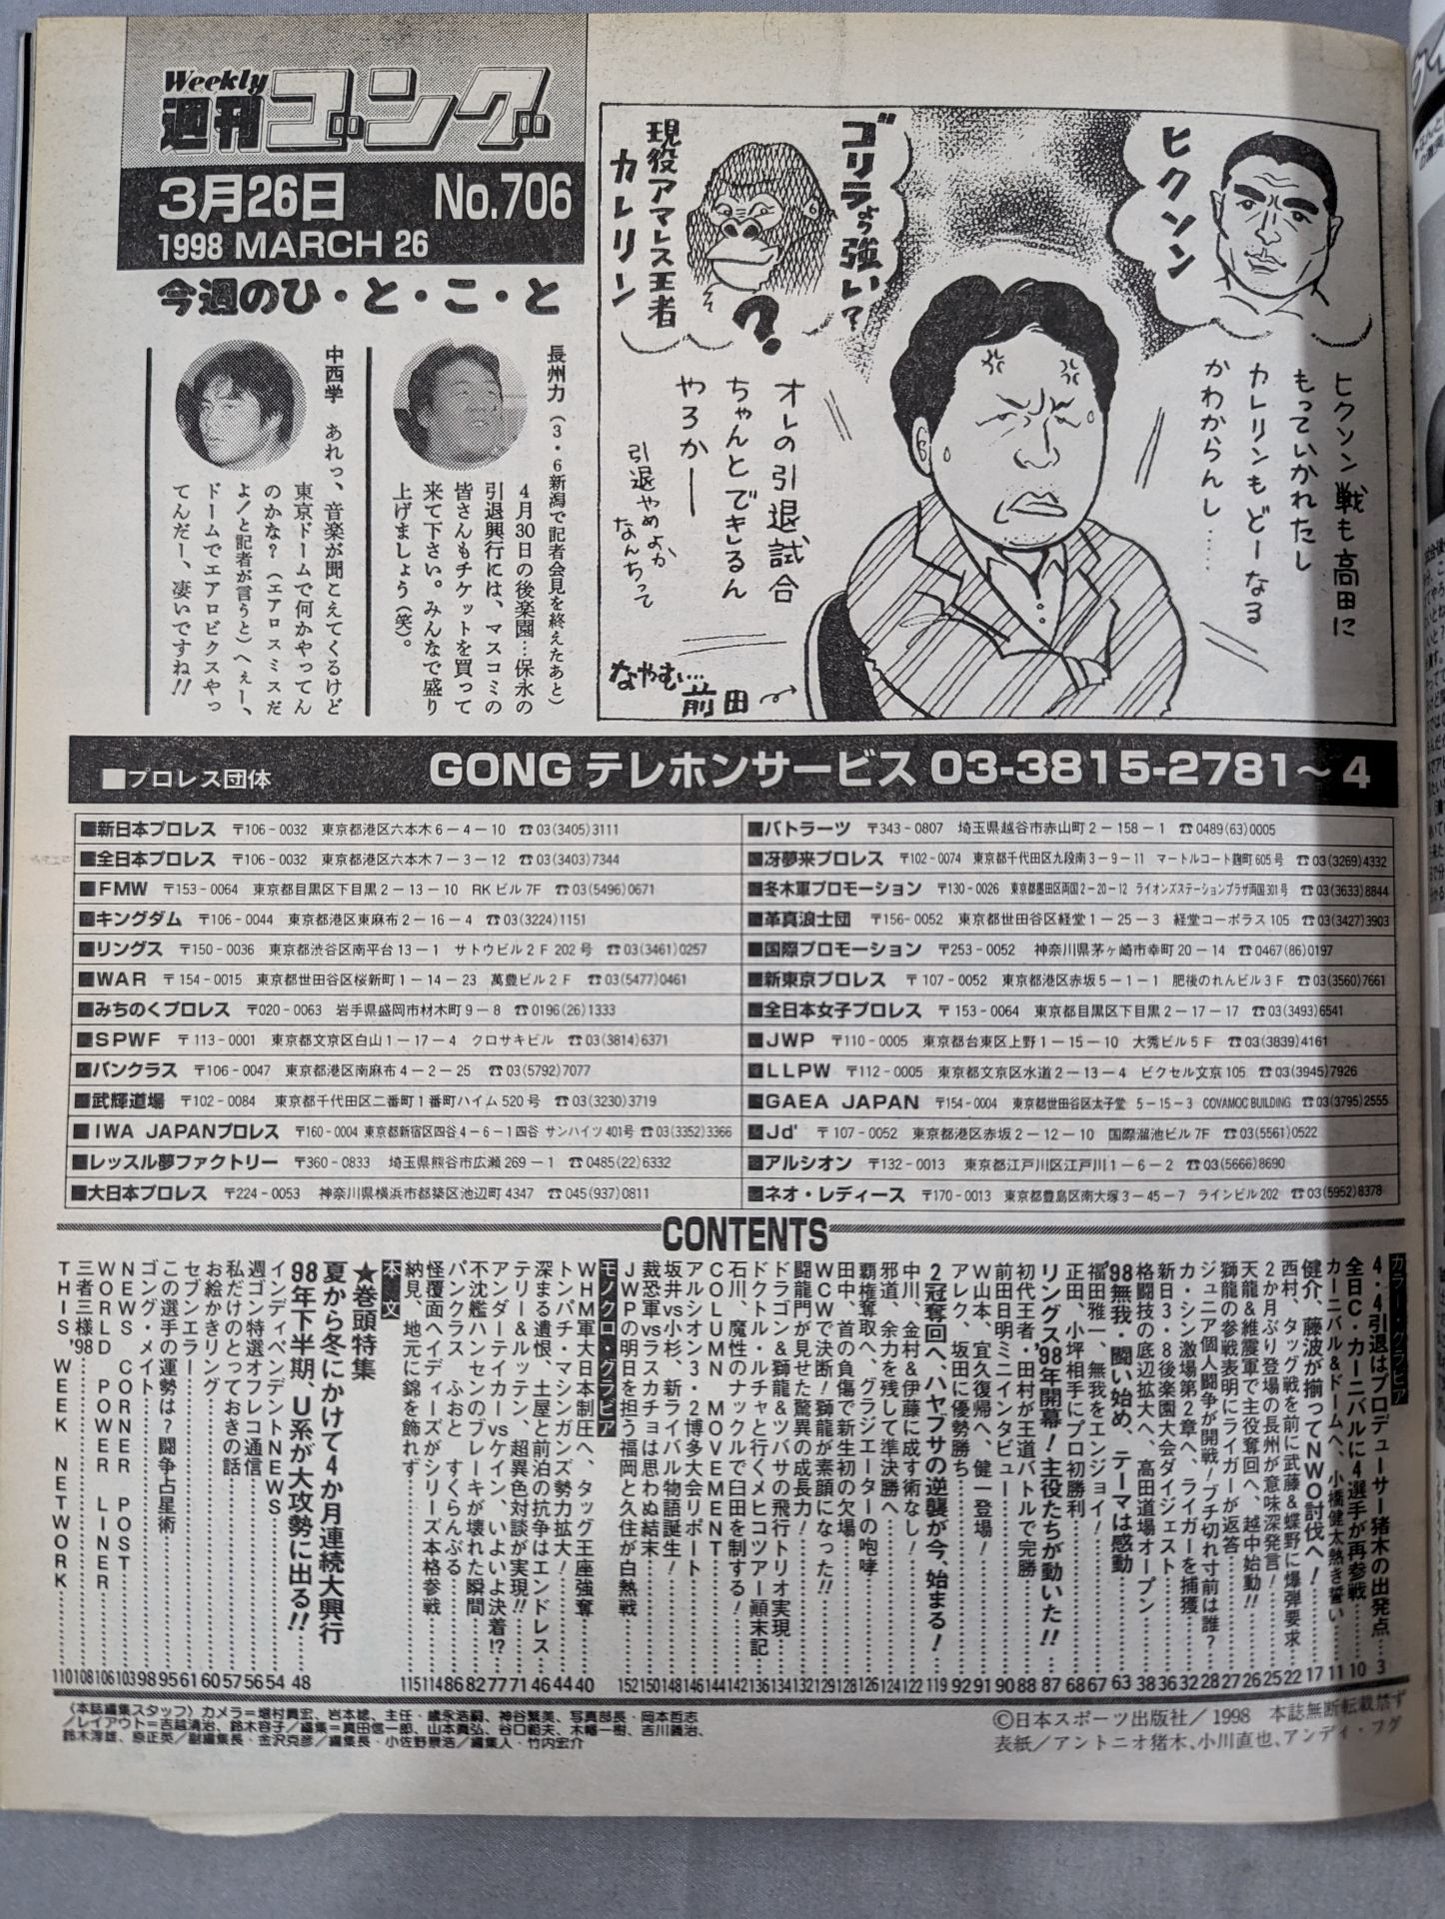 Weekly
週刊ゴング
3月26日 No.706
1998 MARCH 26
今週のひ・と・こ・と
長州力（3・6新潟で記者会見を終えたあと）
4月30日の後楽園…保永の
引退興行には、マスコミの
皆さんもチケットを買って
来て下さい。みんなで盛り
上げましょう（笑）。
中西学 あれっ、音楽が聞こえてくるけど
東京ドームで何かやってん
のかな？（エアロスミスだ
よ！と記者が言うと）へぇー、
ドームでエアロビクスやっ
てんだー、凄いですね!!
ヒクソン
ゴリラより強い？
現役アマレス王者
カレリン
?
ヒクソン戦も高田に
もっていかれたし
カレリンもどーなる
かわからんし……
オレの引退試合
ちゃんとできるん
やろかー
引退やめよか
なんちって
なやむ…
前田
■プロレス団体 GONG テレホンサービス 03-3815-2781〜4
■新日本プロレス 〒106-0032 東京都港区六本木6-4-10 ☎03(3405)3111
■全日本プロレス 〒106-0032 東京都港区六本木7-3-12 ☎03(3403)7344
■FMW 〒153-0064 東京都目黒区下目黒2-13-10 RKビル7F ☎03(5496)0671
■キングダム 〒106-0044 東京都港区東麻布2-16-4 ☎03(3224)1151
■リングス 〒150-0036 東京都渋谷区南平台13-1 サトウビル2F 202号 ☎03(3461)0257
■WAR 〒154-0015 東京都世田谷区桜新町1-14-23 萬豊ビル2F ☎03(5477)0461
■みちのくプロレス 〒020-0063 岩手県盛岡市材木町9-8 ☎0196(26)1333
■SPWF 〒113-0001 東京都文京区白山1-17-4 クロサキビル ☎03(3814)6371
■パンクラス 〒106-0047 東京都港区南麻布4-2-25 ☎03(5792)7077
■武輝道場 〒102-0084 東京都千代田区二番町1番町ハイム520号 ☎03(3230)3719
■IWA JAPANプロレス 〒160-0004 東京都新宿区四谷4-6-1四谷 サンハイツ401号 ☎03(3352)3366
■レッスル夢ファクトリー 〒360-0833 埼玉県熊谷市広瀬269-1 ☎0485(22)6332
■大日本プロレス 〒224-0053 神奈川県横浜市都築区池辺町4347 ☎045(937)0811
■バトラーツ 〒343-0807 埼玉県越谷市赤山町2-158-1 ☎0489(63)0005
■冴夢来プロレス 〒102-0074 東京都千代田区九段南3-9-11 マートルコート麹町605号 ☎03(3269)4332
■冬木軍プロモーション 〒130-0026 東京都墨田区両国2-20-12 ライオンズステーションプラザ両国301号 ☎03(3633)8844
■革真浪士団 〒156-0052 東京都世田谷区経堂1-25-3 経堂コーポラス105 ☎03(3427)3903
■国際プロモーション 〒253-0052 神奈川県茅ヶ崎市幸町20-14 ☎0467(86)0197
■新東京プロレス 〒107-0052 東京都港区赤坂5-1-1 肥後のれんビル3F ☎03(3560)7661
■全日本女子プロレス 〒153-0064 東京都目黒区下目黒2-17-17 ☎03(3493)6541
■JWP 〒110-0005 東京都台東区上野1-15-10 大秀ビル5F ☎03(3839)4161
■LLPW 〒112-0005 東京都文京区水道2-13-4 ビクセル文京105 ☎03(3945)7926
■GAEA JAPAN 〒154-0004 東京都世田谷区太子堂 5-15-3 COVAMOC BUILDING ☎03(3795)2555
■Jd' 〒107-0052 東京都港区赤坂2-12-10 国際溜池ビル7F ☎03(5561)0522
■アルシオン 〒132-0013 東京都江戸川区江戸川1-6-2 ☎03(5666)8690
■ネオ・レディース 〒170-0013 東京都豊島区南大塚3-45-7 ラインビル202 ☎03(5952)8378
CONTENTS
カラー・グラビア
4・4引退はプロデューサー猪木の出発点…3
全日C・カーニバルに4選手が再参戦……10
カーニバル&ドームへ、小橋健太熱き誓い……11
健介、藤波が揃ってNWO討伐へ！……17
西村、タッグ戦を前に武藤&蝶野に爆弾要求……22
2か月ぶり登場の長州が意味深発言！……25
天龍&維震軍で主役奪回へ、越中始動!!……26
獅龍の参戦表明にライガーが返答……27
ジュニア個人闘争が開戦！ブチ切れ寸前は誰？……28
カ・シン激場第2章へ、ライガーを捕獲……32
新日3・8後楽園大会ダイジェスト……36
格闘技の底辺拡大へ、高田道場オープン……38
'98無我・闘い始め、テーマは感動……63
福田雅一、無我をエンジョイ！……67
正田、小坪相手にプロ初勝利……68
リングス'98年開幕！主役たちが動いた!!……87
初代王者・田村が王道バトルで完勝……88
前田日明ミニインタビュー……90
W山本、宜久復帰へ、健一登場！……91
アレク、坂田に優勢勝ち……92
2冠奪回へ、ハヤブサの逆襲が今、始まる！……119
中川、金村&伊藤に成す術なし！……122
邪道、余力を残して準決勝へ……124
覇権奪取へ、グラジエーターの咆哮……126
田中、首の負傷で新生初の欠場……128
WCWで決断！獅龍が素顔になった!!……129
闘龍門が見せた驚異の成長力！……132
ドラゴン&獅龍&ツバサの飛行トリオ実現……134
ドクトル・ルチャと行くメヒコツアー顛末記……136
石川、魔性のナックルで臼田を制する！……142
COLUMN MOVEMENT……144
アルシオン3・2博多大会リポート……146
坂井vs小杉、新ライバル物語誕生！……148
裁恐軍vsラスカチョは思わぬ結末……150
JWPの明日を担う福岡と久住が白熱戦……152
モノクロ・グラビア
WHM軍大日本制圧へ、タッグ王座強奪……40
トンパチ・マシンガンズ勢力拡大！……44
深まる遺恨、土屋と前泊の抗争はエンドレス……46
テリー&ルッテン、超異色対談が実現!!……71
アンダーテイカーvsケイン、いよいよ決着!?……77
不沈艦ハンセンのブレーキが壊れた瞬間……82
パンクラス ふおと すくらんぶる……86
怪覆面ヘイディーズがシリーズ本格参戦……114
納見、地元に錦を飾れず……115
本文
★巻頭特集
夏から冬にかけて4か月連続大興行
98年下半期、U系が大攻勢に出る!!……48
インディペンデントNEWS……54
週ゴン特選オフレコ通信……56
私だけのとっておきの話……57
お絵かきリング……60
セブンエラー……61
この選手の運勢は？闘争占星術……95
ゴング・メイト……98
NEWS CORNER POST……103
WORLD POWER LINER……106
三者三様'98……108
THIS WEEK NETWORK……110
〈本誌編集スタッフ〉カメラ＝増村貴宏、岩本総、主任・歳永浩嗣、神谷繁美、写真部長・岡本哲志
／レイアウト＝吉越清治、鈴木容子／編集＝真田信一郎、山本貴弘、谷口範夫、木幡一樹、吉川義治、
鈴木淳雄、原正英／副編集長・金沢克彦／編集長・小佐野景浩／編集人・竹内宏介
©日本スポーツ出版社／1998 本誌無断転載禁ず
表紙／アントニオ猪木、小川直也、アンディ・フグ